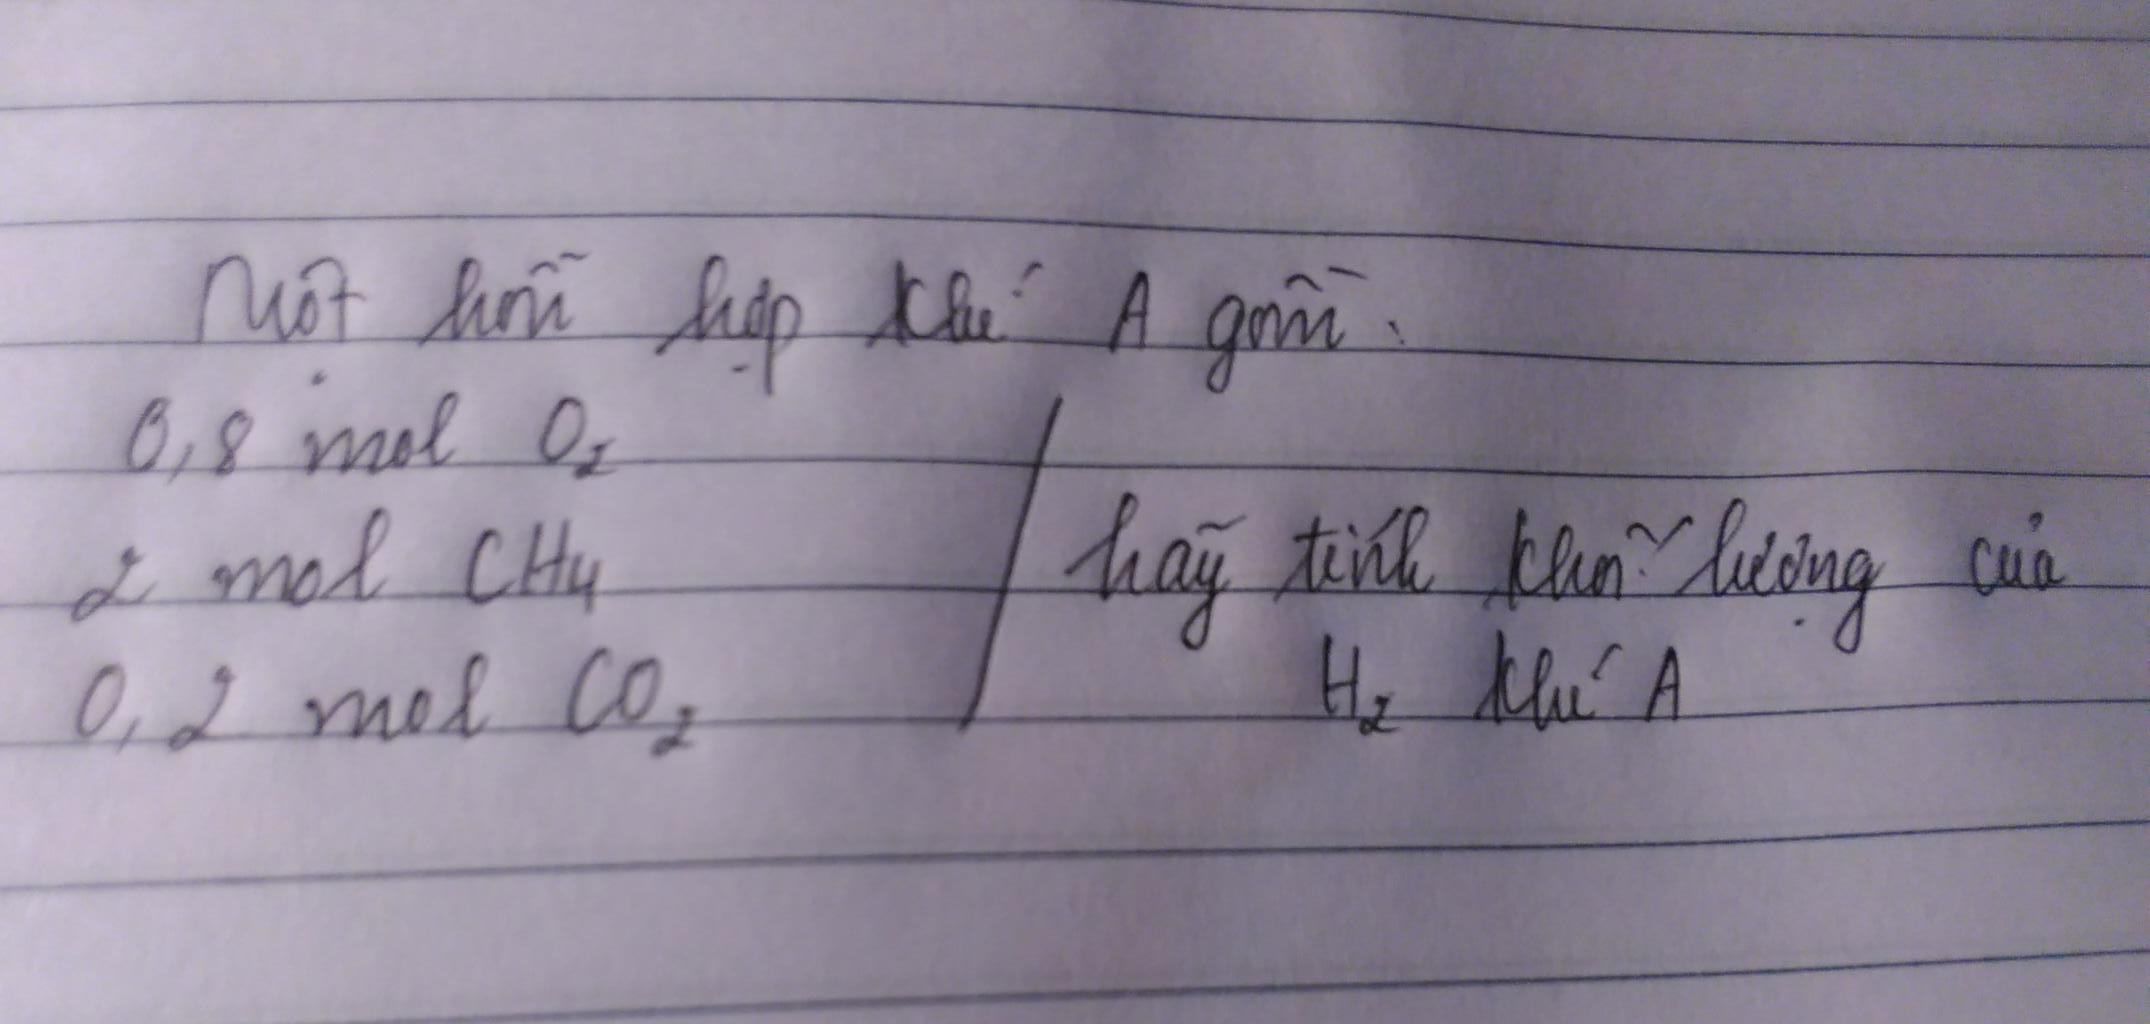 Một hỗn hợp khí A gồm:
0,8 mol O₂
2 mol CH₄
0,2 mol CO₂
hãy tính khối lượng của
H₂ khí A